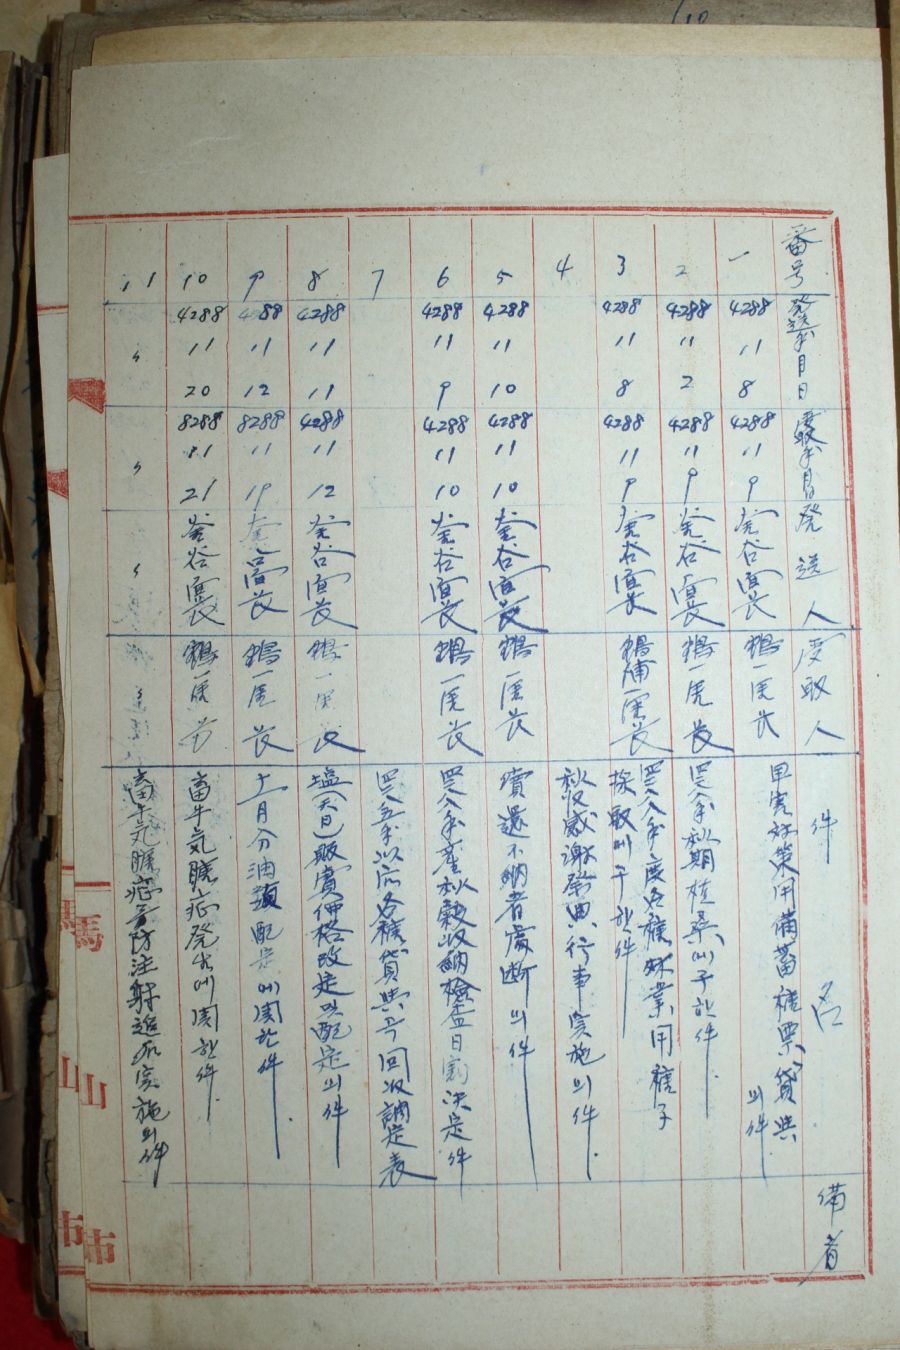 番号 發送年月日 受年月日 発送人 受取人 件名 備考
一 4288 11 8 4288 11 9 釜谷面長 鶴一区長 用備蓄種票貸与의件
2 4288 11 2 4288 11 9 釜谷面長 鶴一区長 四二八八年秋期植桑에関한件
3 4288 11 8 4288 11 9 釜谷面長 鶴浦一区長 四二八八年度各種林業用種子
採取에関한件
4 秋収感謝祭典行事実施의件
5 4288 11 10 4288 11 10 釜谷面長 鶴一区長 償還不納者處断의件
6 4288 11 9 4288 11 10 釜谷面長 鶴一区長 四二八八年産秋穀収納檢査日割決定件
7 四二八五年以后各種貸与조回収調定表
8 4288 11 11 4288 11 12 釜谷面長 鶴一区長 塩(天日)販賣価格改定및配定의件
9 4288 11 12 8288 11 19 釜谷面長 鶴一区長 十一月分油類配定에関한件
10 4288 11 20 8288 11 21 釜谷面長 鶴一区長 畜牛気腫疽発生에関한件
11 〃 〃 〃 畜牛気腫疽予防注射追加実施의件
馬山市
馬山市